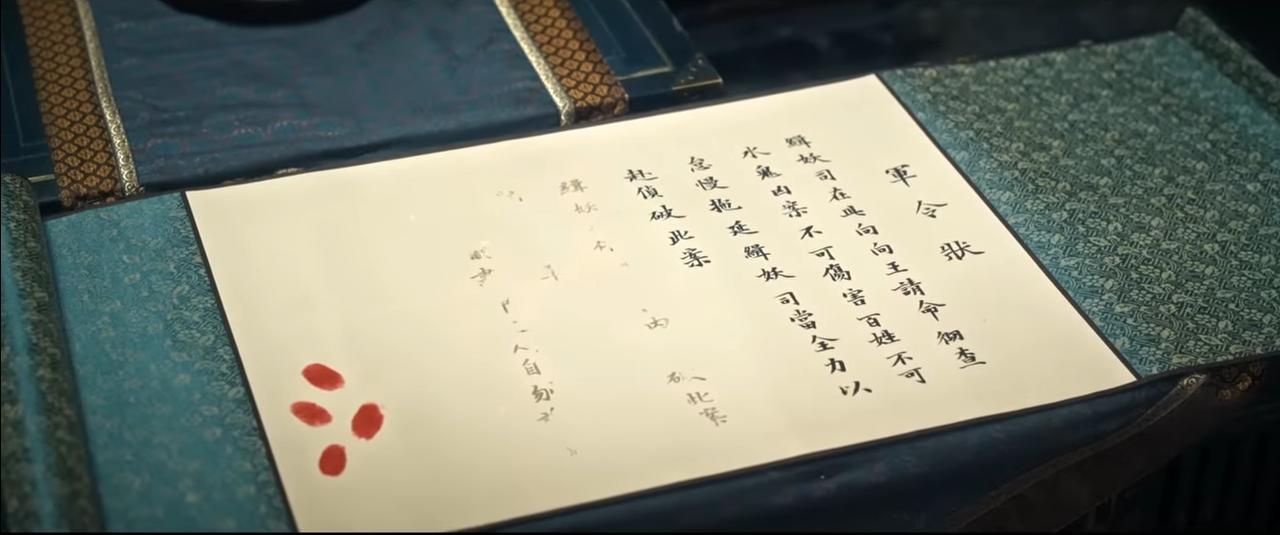 軍令狀
緝妖司在此向向王請命徹查
水鬼凶案不可傷害百姓不可
怠慢拖延緝妖司當全力以
赴偵破此案
緝妖
由
此案
人自